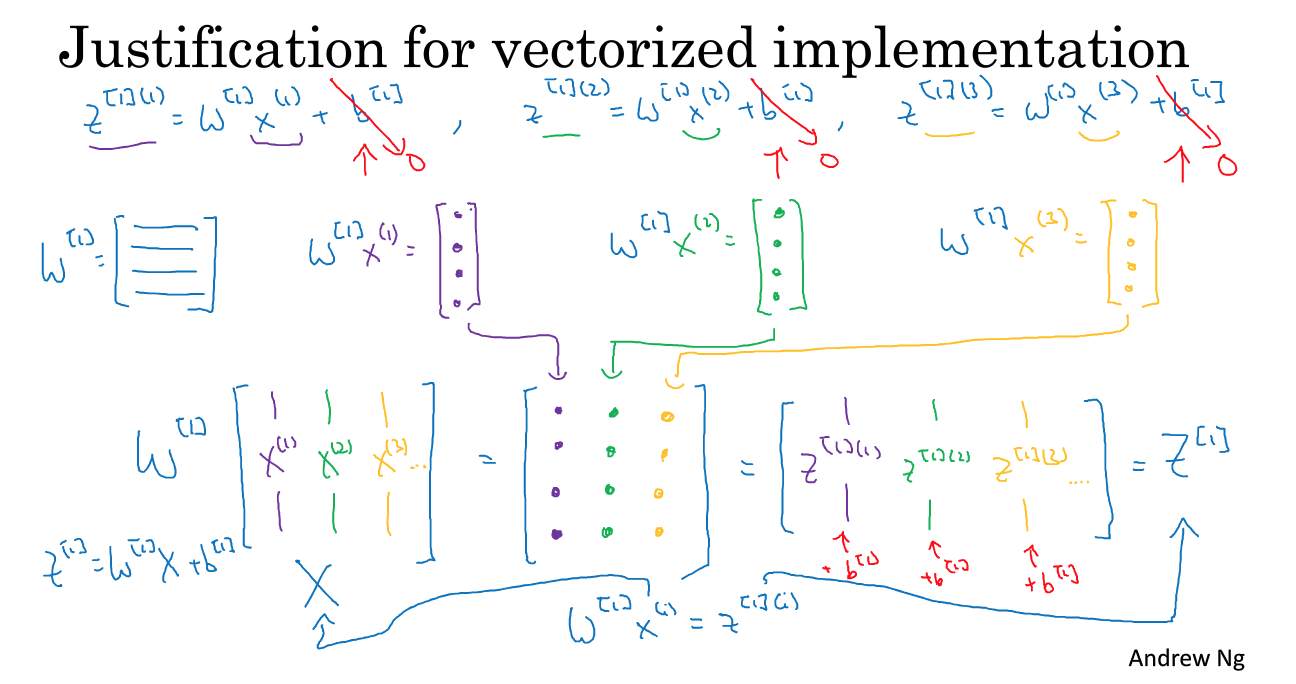 Justification for vectorized implementation
z^[1](1) = W^[1] x^(1) + b^[1] , z^[1](2) = W^[1] x^(2) + b^[1] , z^[1](3) = W^[1] x^(3) + b^[1]
0 0 0
W^[1] = [ ] W^[1] x^(1) = [ ] W^[1] x^(2) = [ ] W^[1] x^(3) = [ ]
W^[1] [ x^(1) x^(2) x^(3) ... ] = [ ] = [ z^[1](1) z^[1](2) z^[1](3) .... ] = Z^[1]
z^[1] = W^[1] X + b^[1] X + b^[1] + b^[1] + b^[1]
W^[1] x^(i) = z^[1](i)
Andrew Ng